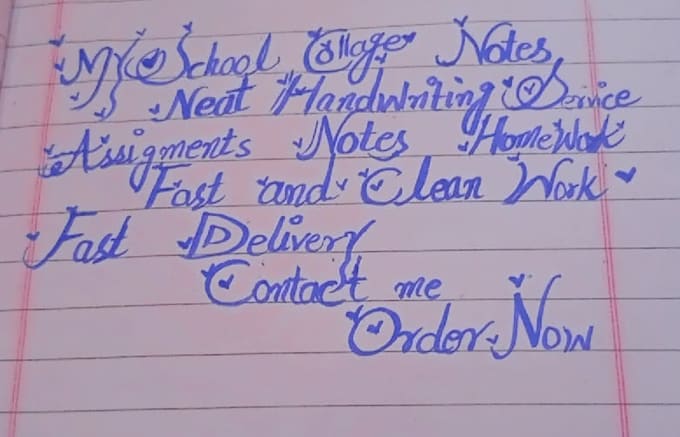 My School Collager Notes
Neat Handwriting Service
Assigments Notes HomeWork
Fast and Clean Work
Fast Delivery
Contact me
Order Now